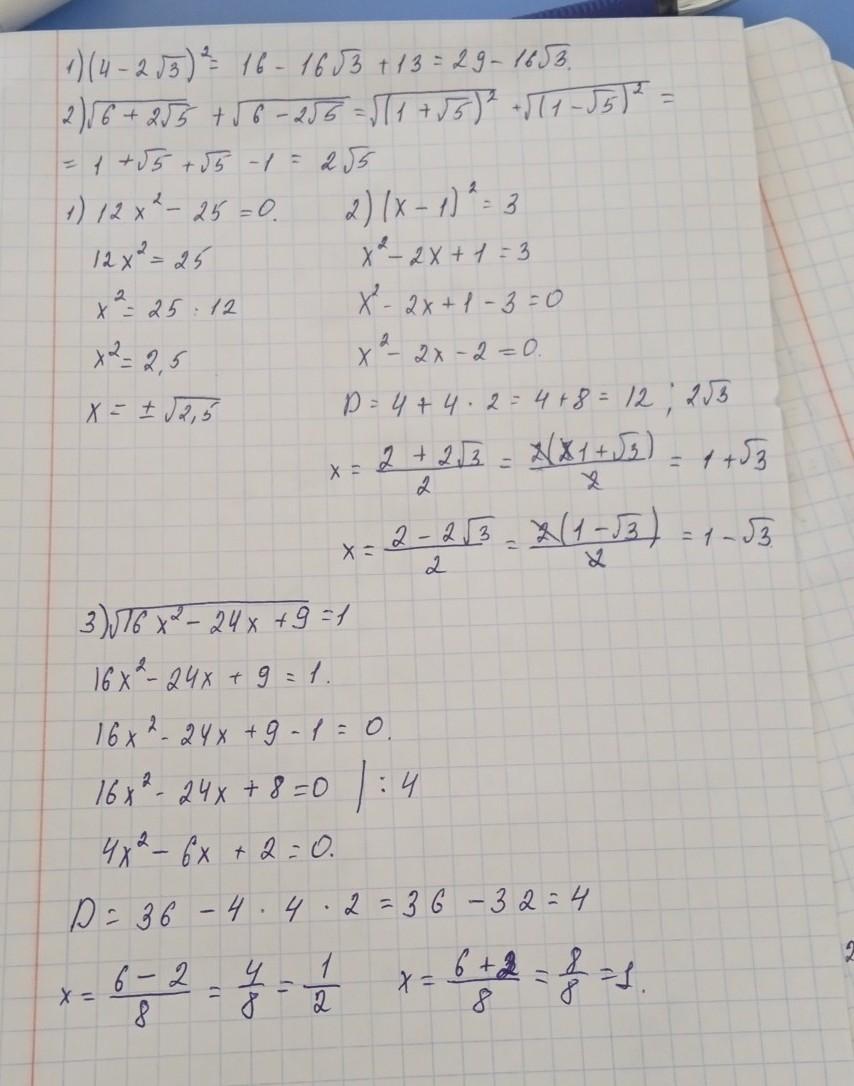 1) (4 - 2√3)² = 16 - 16√3 + 13 = 29 - 16√3.
2) √(6 + 2√5) + √(6 - 2√5) = √((1 + √5)²) + √((1 - √5)²) =
= 1 + √5 + √5 - 1 = 2√5
1) 12x² - 25 = 0.
12x² = 25
x² = 25 : 12
x² = 2,5
x = ± √2,5
2) (x - 1)² = 3
x² - 2x + 1 = 3
x² - 2x + 1 - 3 = 0
x² - 2x - 2 = 0.
D = 4 + 4 · 2 = 4 + 8 = 12 ; 2√3
x = (2 + 2√3)/2 = 2(1 + √3)/2 = 1 + √3
x = (2 - 2√3)/2 = 2(1 - √3)/2 = 1 - √3
3) √(16x² - 24x + 9) = 1
16x² - 24x + 9 = 1.
16x² - 24x + 9 - 1 = 0.
16x² - 24x + 8 = 0 | : 4
4x² - 6x + 2 = 0.
D = 36 - 4 · 4 · 2 = 36 - 32 = 4
x = (6 - 2)/8 = 4/8 = 1/2 x = (6 + 2)/8 = 8/8 = 1.
2